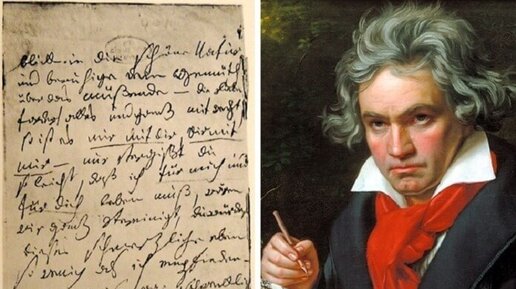 blick in die schöne Natur
und beruhige dein Gemüth
über das müßende — die liebe
fordert alles und ganz mit recht
so ist es mir mit dir, dir mit
mir — nur vergißt du
so leicht, daß ich für mich und
für dich leben muß, wären
wir ganz vereinigt, du würdest
dieses schmerzliche eben
so wenig als ich empfinden —